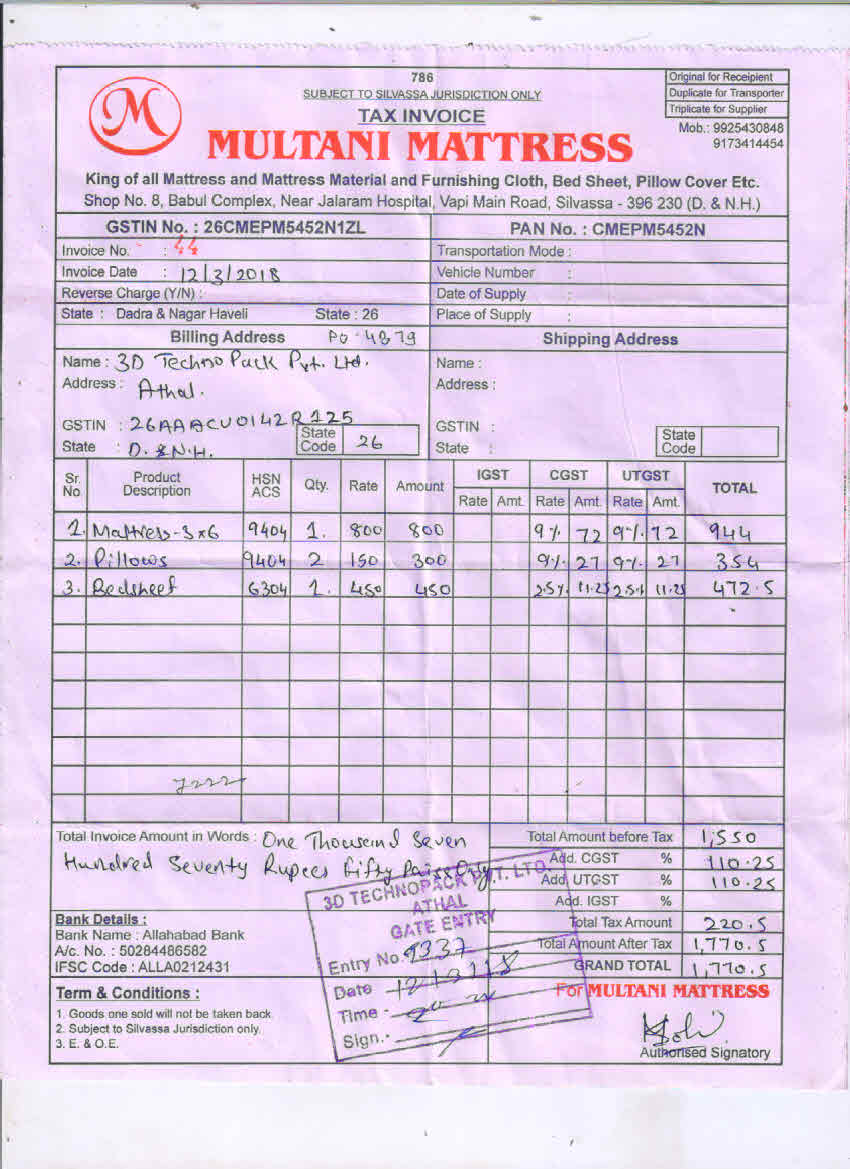 786
SUBJECT TO SILVASSA JURISDICTION ONLY
TAX INVOICE
Original for Receipient
Duplicate for Transporter
Triplicate for Supplier
Mob.: 9925430848
9173414454
M
MULTANI MATTRESS
King of all Mattress and Mattress Material and Furnishing Cloth, Bed Sheet, Pillow Cover Etc.
Shop No. 8, Babul Complex, Near Jalaram Hospital, Vapi Main Road, Silvassa - 396 230 (D. & N.H.)
GSTIN No. : 26CMEPM5452N1ZL PAN No. : CMEPM5452N
Invoice No. : 44 Transportation Mode :
Invoice Date : 12/3/2018 Vehicle Number :
Reverse Charge (Y/N) : Date of Supply :
State : Dadra & Nagar Haveli State : 26 Place of Supply :
Billing Address PO-4879 Shipping Address
Name : 3D Techno Pack Pvt. Ltd. Name :
Address : Athal. Address :
GSTIN : 26AAACU0142R1Z5 GSTIN :
State : D. & N.H. State Code 26 State : State Code
Sr. No. Product Description HSN ACS Qty. Rate Amount IGST CGST UTGST TOTAL
Rate Amt. Rate Amt. Rate Amt.
1. Mattress-3x6 9404 1. 800 800 9% 72 9% 72 944
2. Pillows 9404 2 150 300 9% 27 9% 27 354
3. Bedsheet 6304 1. 450 450 2.5% 11.25 2.5% 11.25 472.5
Total Invoice Amount in Words : One Thousand Seven
Hundred Seventy Rupees Fifty Paise Only.
Total Amount before Tax 1,550
Add. CGST % 110.25
Add. UTGST % 110.25
Add. IGST %
Total Tax Amount 220.5
Total Amount After Tax 1,770.5
GRAND TOTAL 1,770.5
Bank Details :
Bank Name : Allahabad Bank
A/c. No. : 50284486582
IFSC Code : ALLA0212431
3D TECHNOPACK PVT. LTD.
ATHAL
GATE ENTRY
Entry No. 9337
Date - 12/3/18
Time -
Sign.-
Term & Conditions :
1. Goods one sold will not be taken back.
2. Subject to Silvassa Jurisdiction only.
3. E. & O.E.
For MULTANI MATTRESS
Authorised Signatory